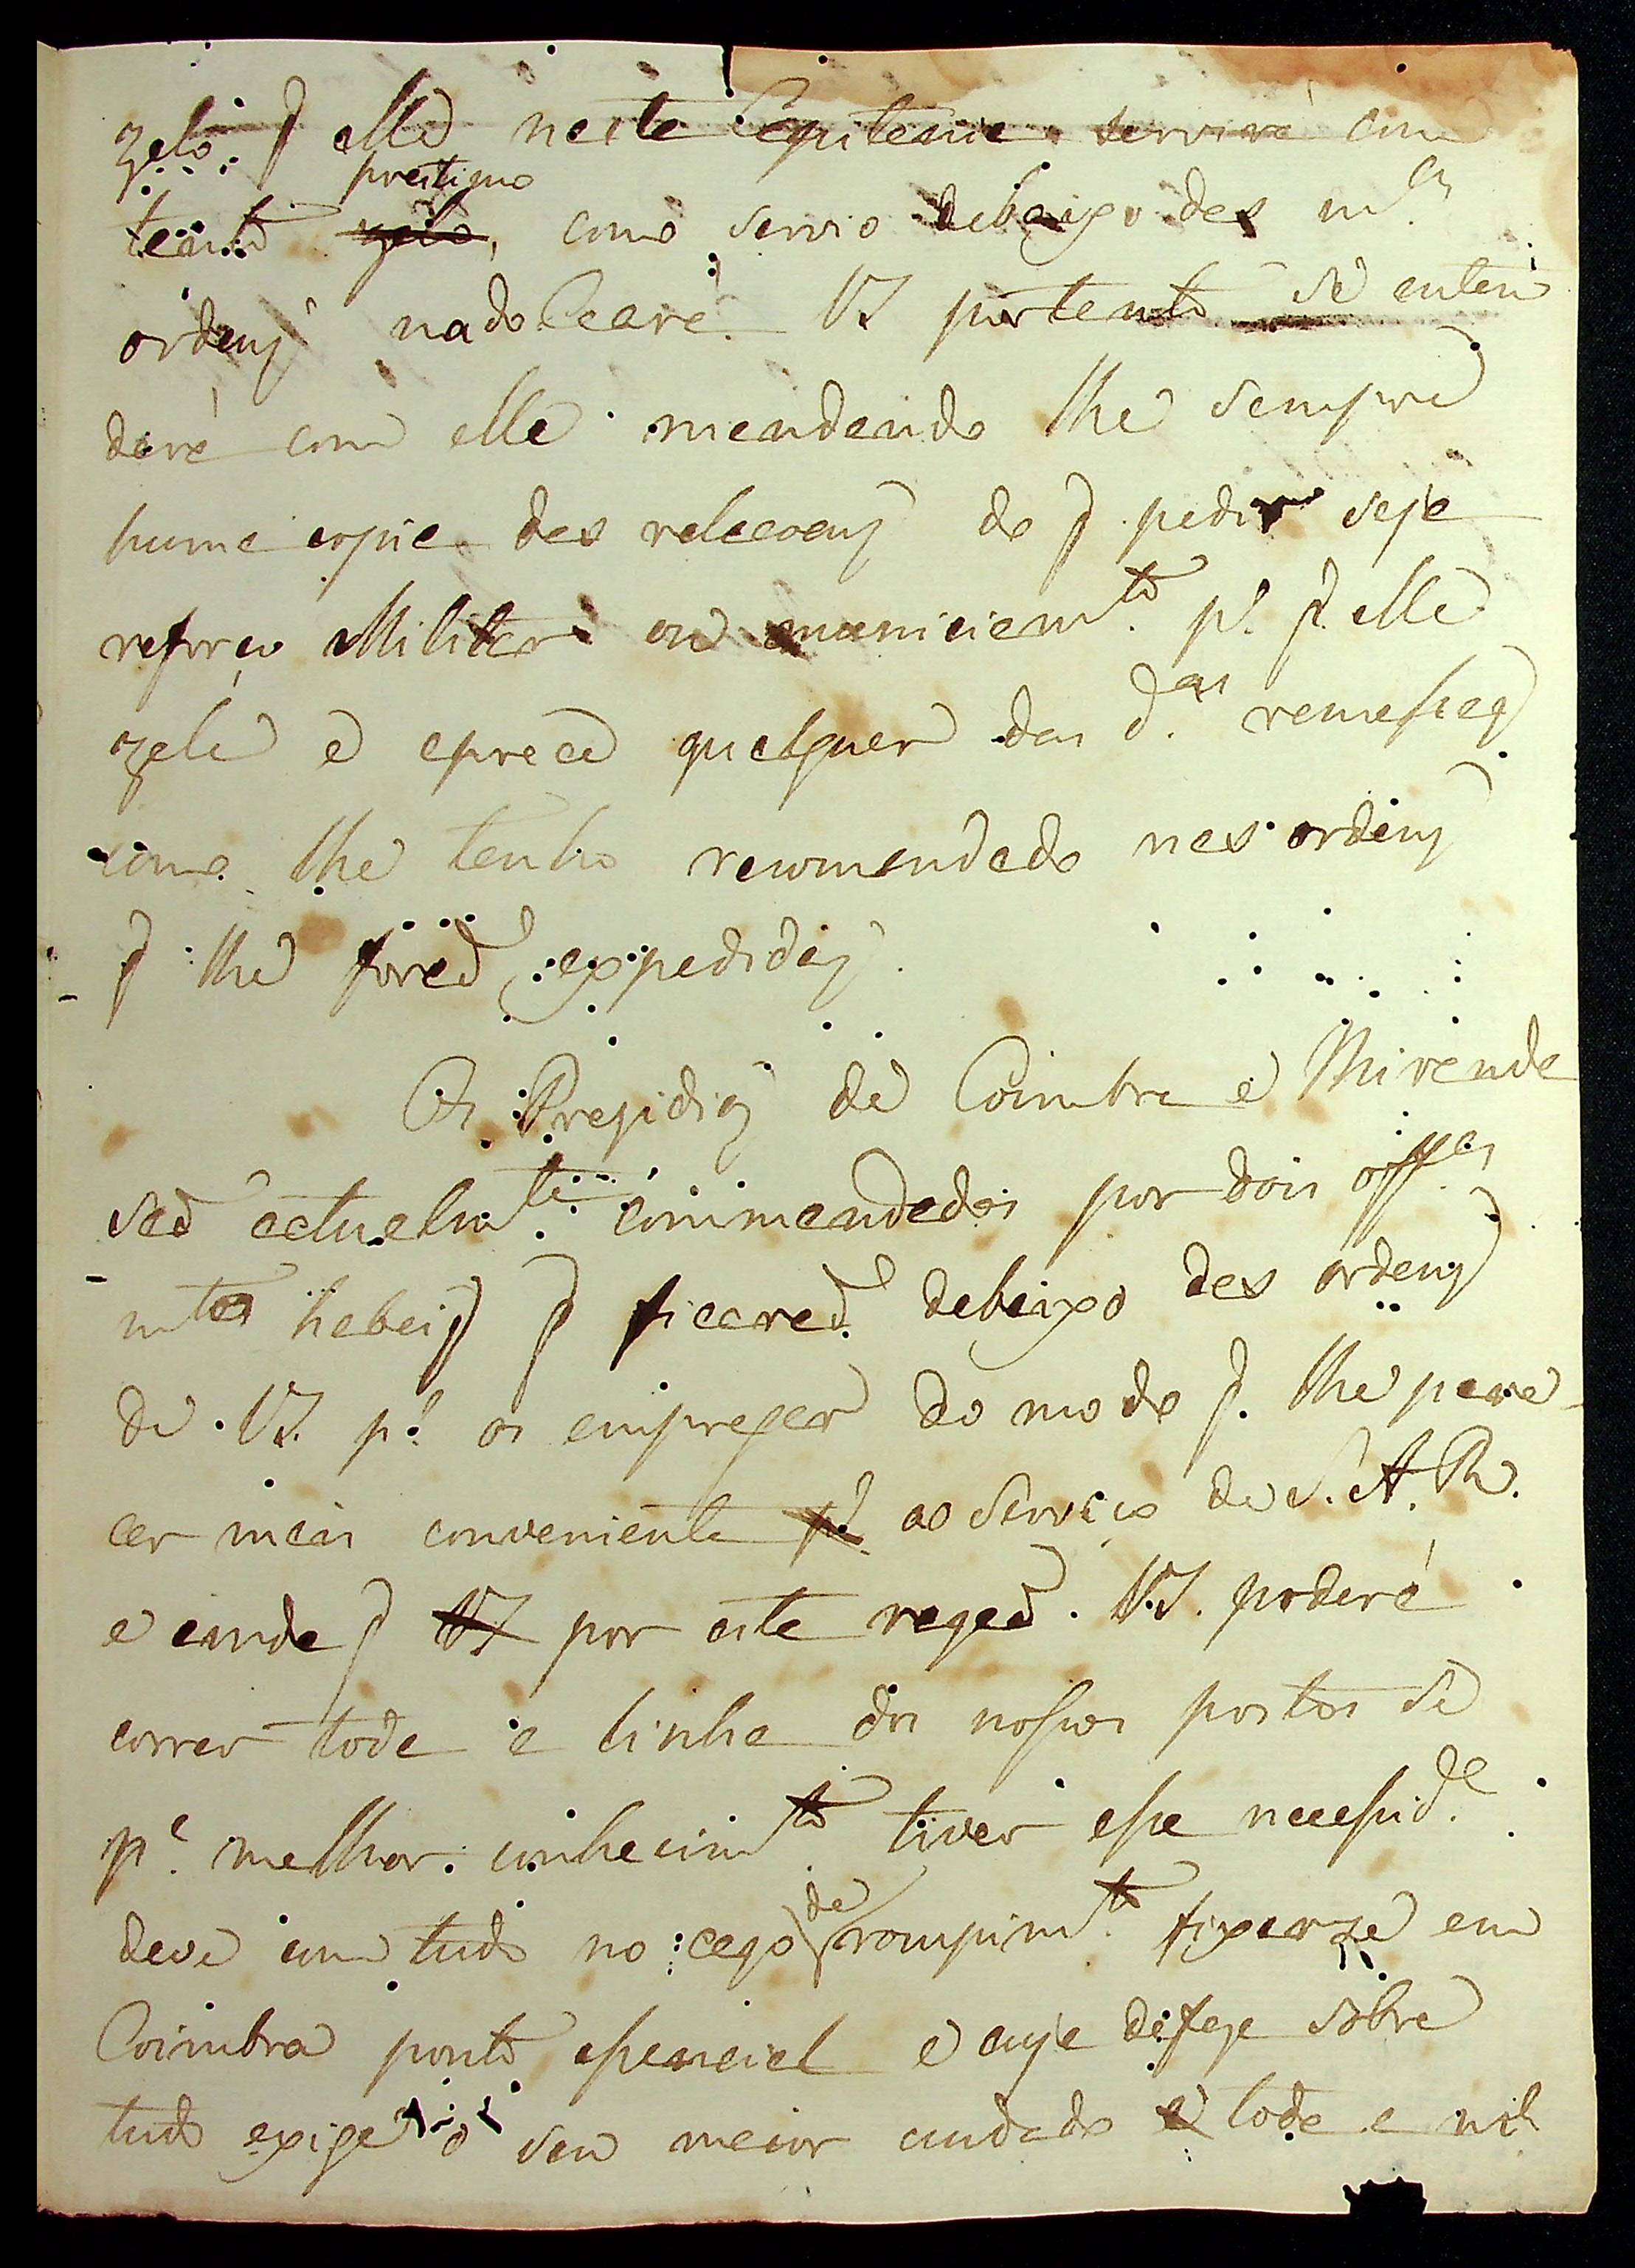 zelo q̃ elle nesta Capitania servirá com
prestimo
tanto zelo, como servio debaixo das m.as
ordens na do Ceará. VS. portanto se enten
derá com elle mandando lhe sempre
huma copia das relacoens do q̃ pedir seja
reforço Militar ou municiam.to p.a q̃ elle
zele e aprece qualquer das d.as remessas
como lhe tenho recomendado nas ordens
q̃ lhe foraõ expedidas.
Os Presidios de Coimbra e Miranda
saõ actualm.te commandados por dois off.es
m.tos habeis q̃ ficaraõ debaixo das ordens
de VS. p.a os empregar do modo q̃ lhe pare-
cer mais conveniente p.a ao Serviço de S. A. R.
e ainda q̃ VS por esta regeaõ. VS. poderá
correr toda a linha dos nossos postos se
p.a melhor conhecim.to tiver essa necessid.e
de
deve com tudo no cazo rompim.to fixarze em
Coimbra ponto essencial e cuja defeza sobre
tudo exige o seu maior cuidado e toda a